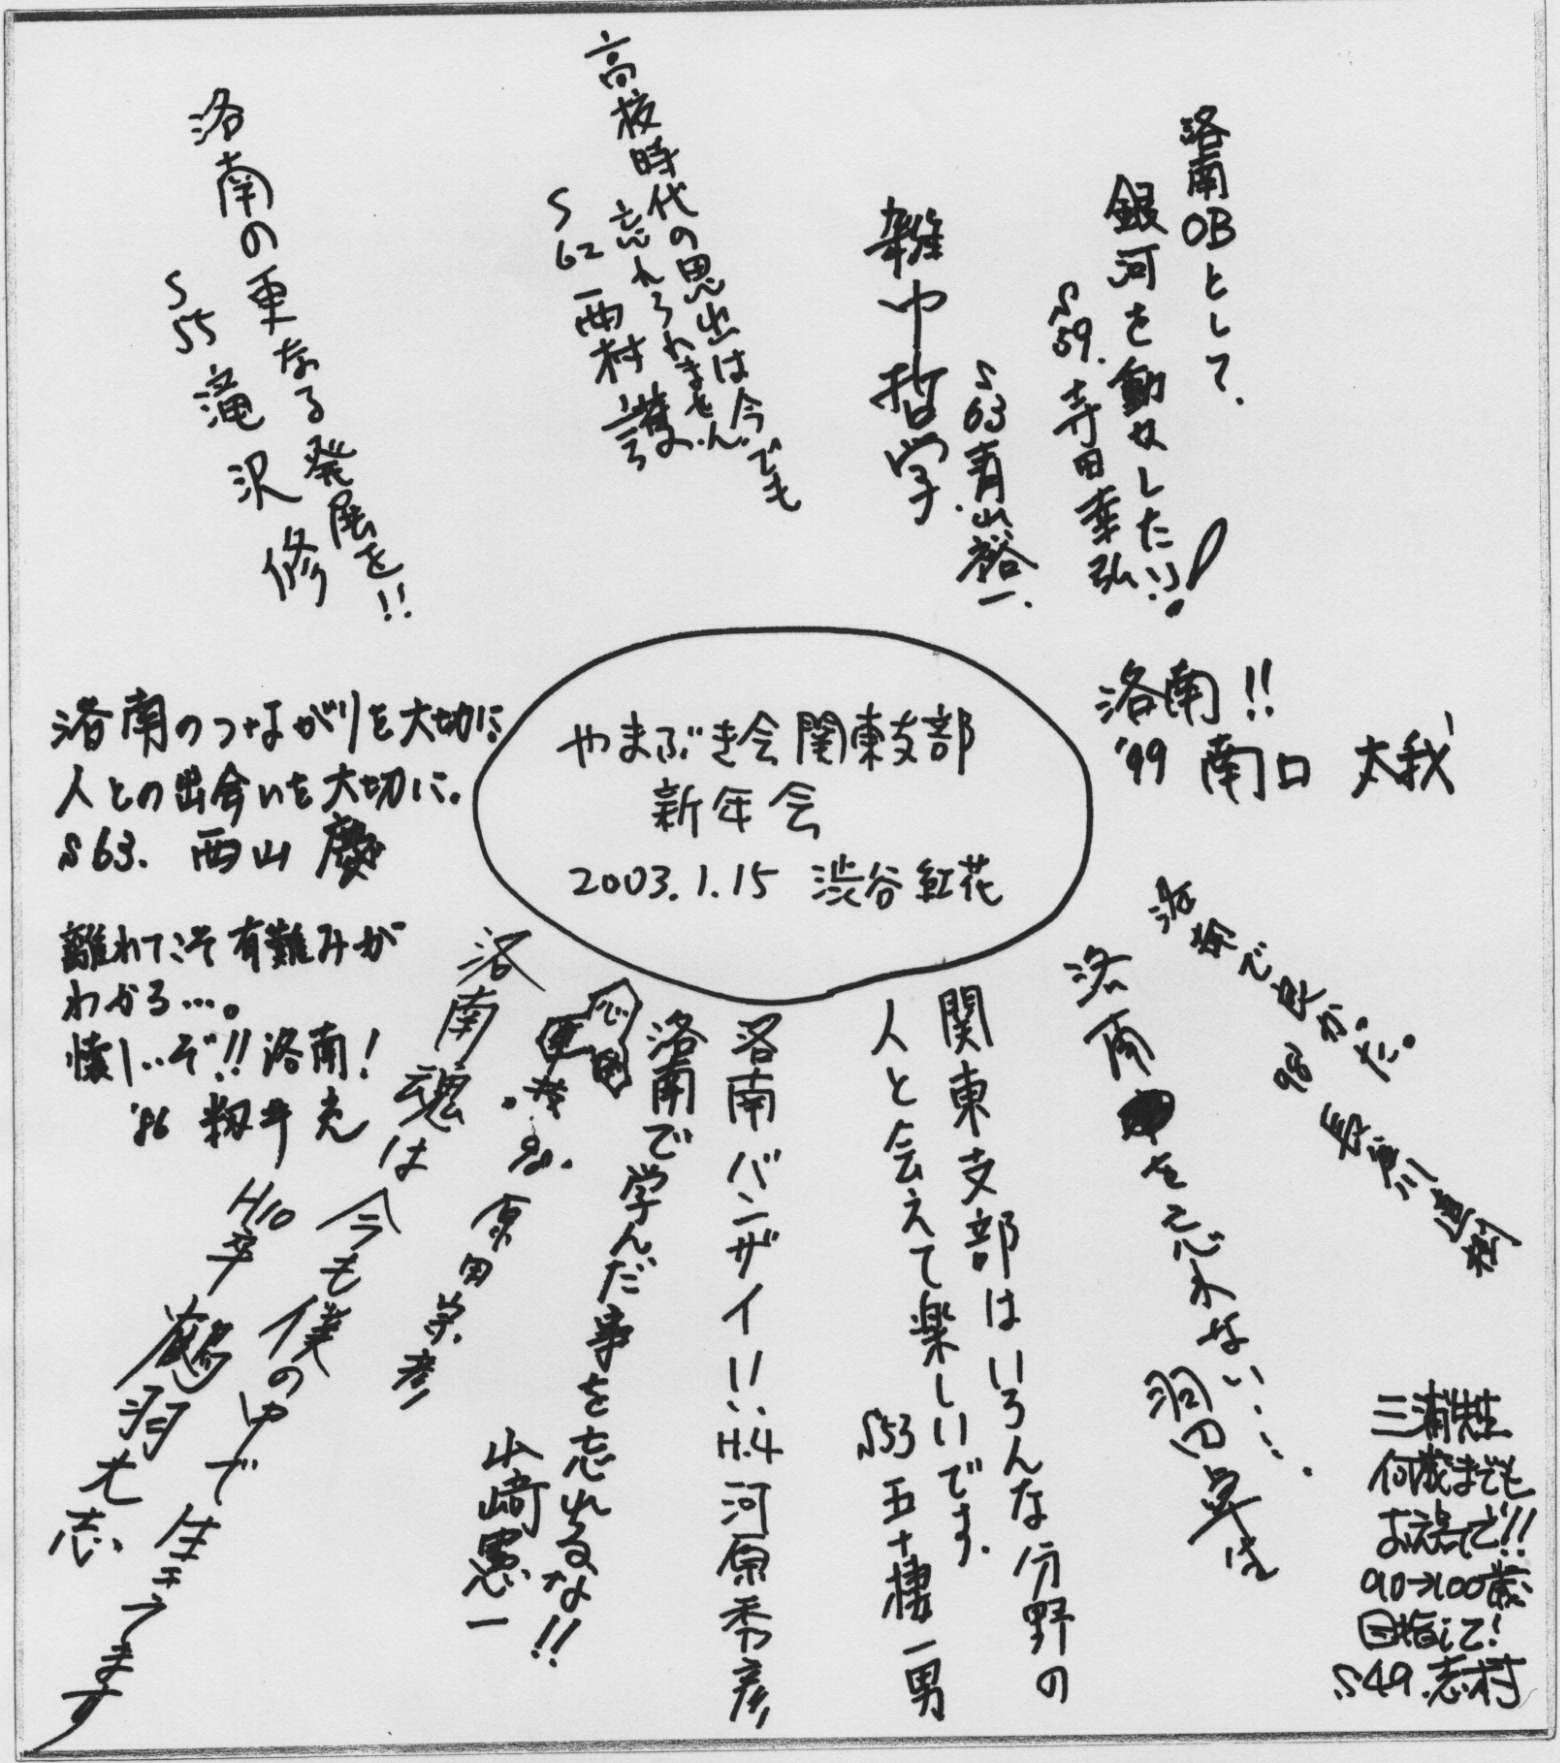 やまぶき会関東支部
新年会
2003.1.15 渋谷 紅花
洛南OBとして、
銀河を動かしたい!
S59. 寺田幸弘
雑中哲学
S63 青山裕一.
高校時代の思出は今でも
忘れられません.
S62 西村 護
洛南の更なる発展を!!
S55 滝沢 修
洛南のつながりを大切に
人との出会いを大切に。
S63. 西山 慶
離れてこそ有難みが
わかる…。
懐しいぞ!!洛南!
'86 籾井 充
洛南魂は 今も僕の中で 生きてます
H10卒 鶴羽 大志
'98. 原田 崇彦
洛南で学んだ事を忘れるな!!
山崎憲一
洛南バンザイ!! H.4 河原秀彦
関東支部はいろんな分野の
人と会えて楽しいです.
S53 五十棲一男
洛南を忘れない….
洛南で良かった。
'98
洛南!!
'99 南口 太我
三浦先生
何歳までも
お元気で!!
90→100歳
目指して!
S49.志村